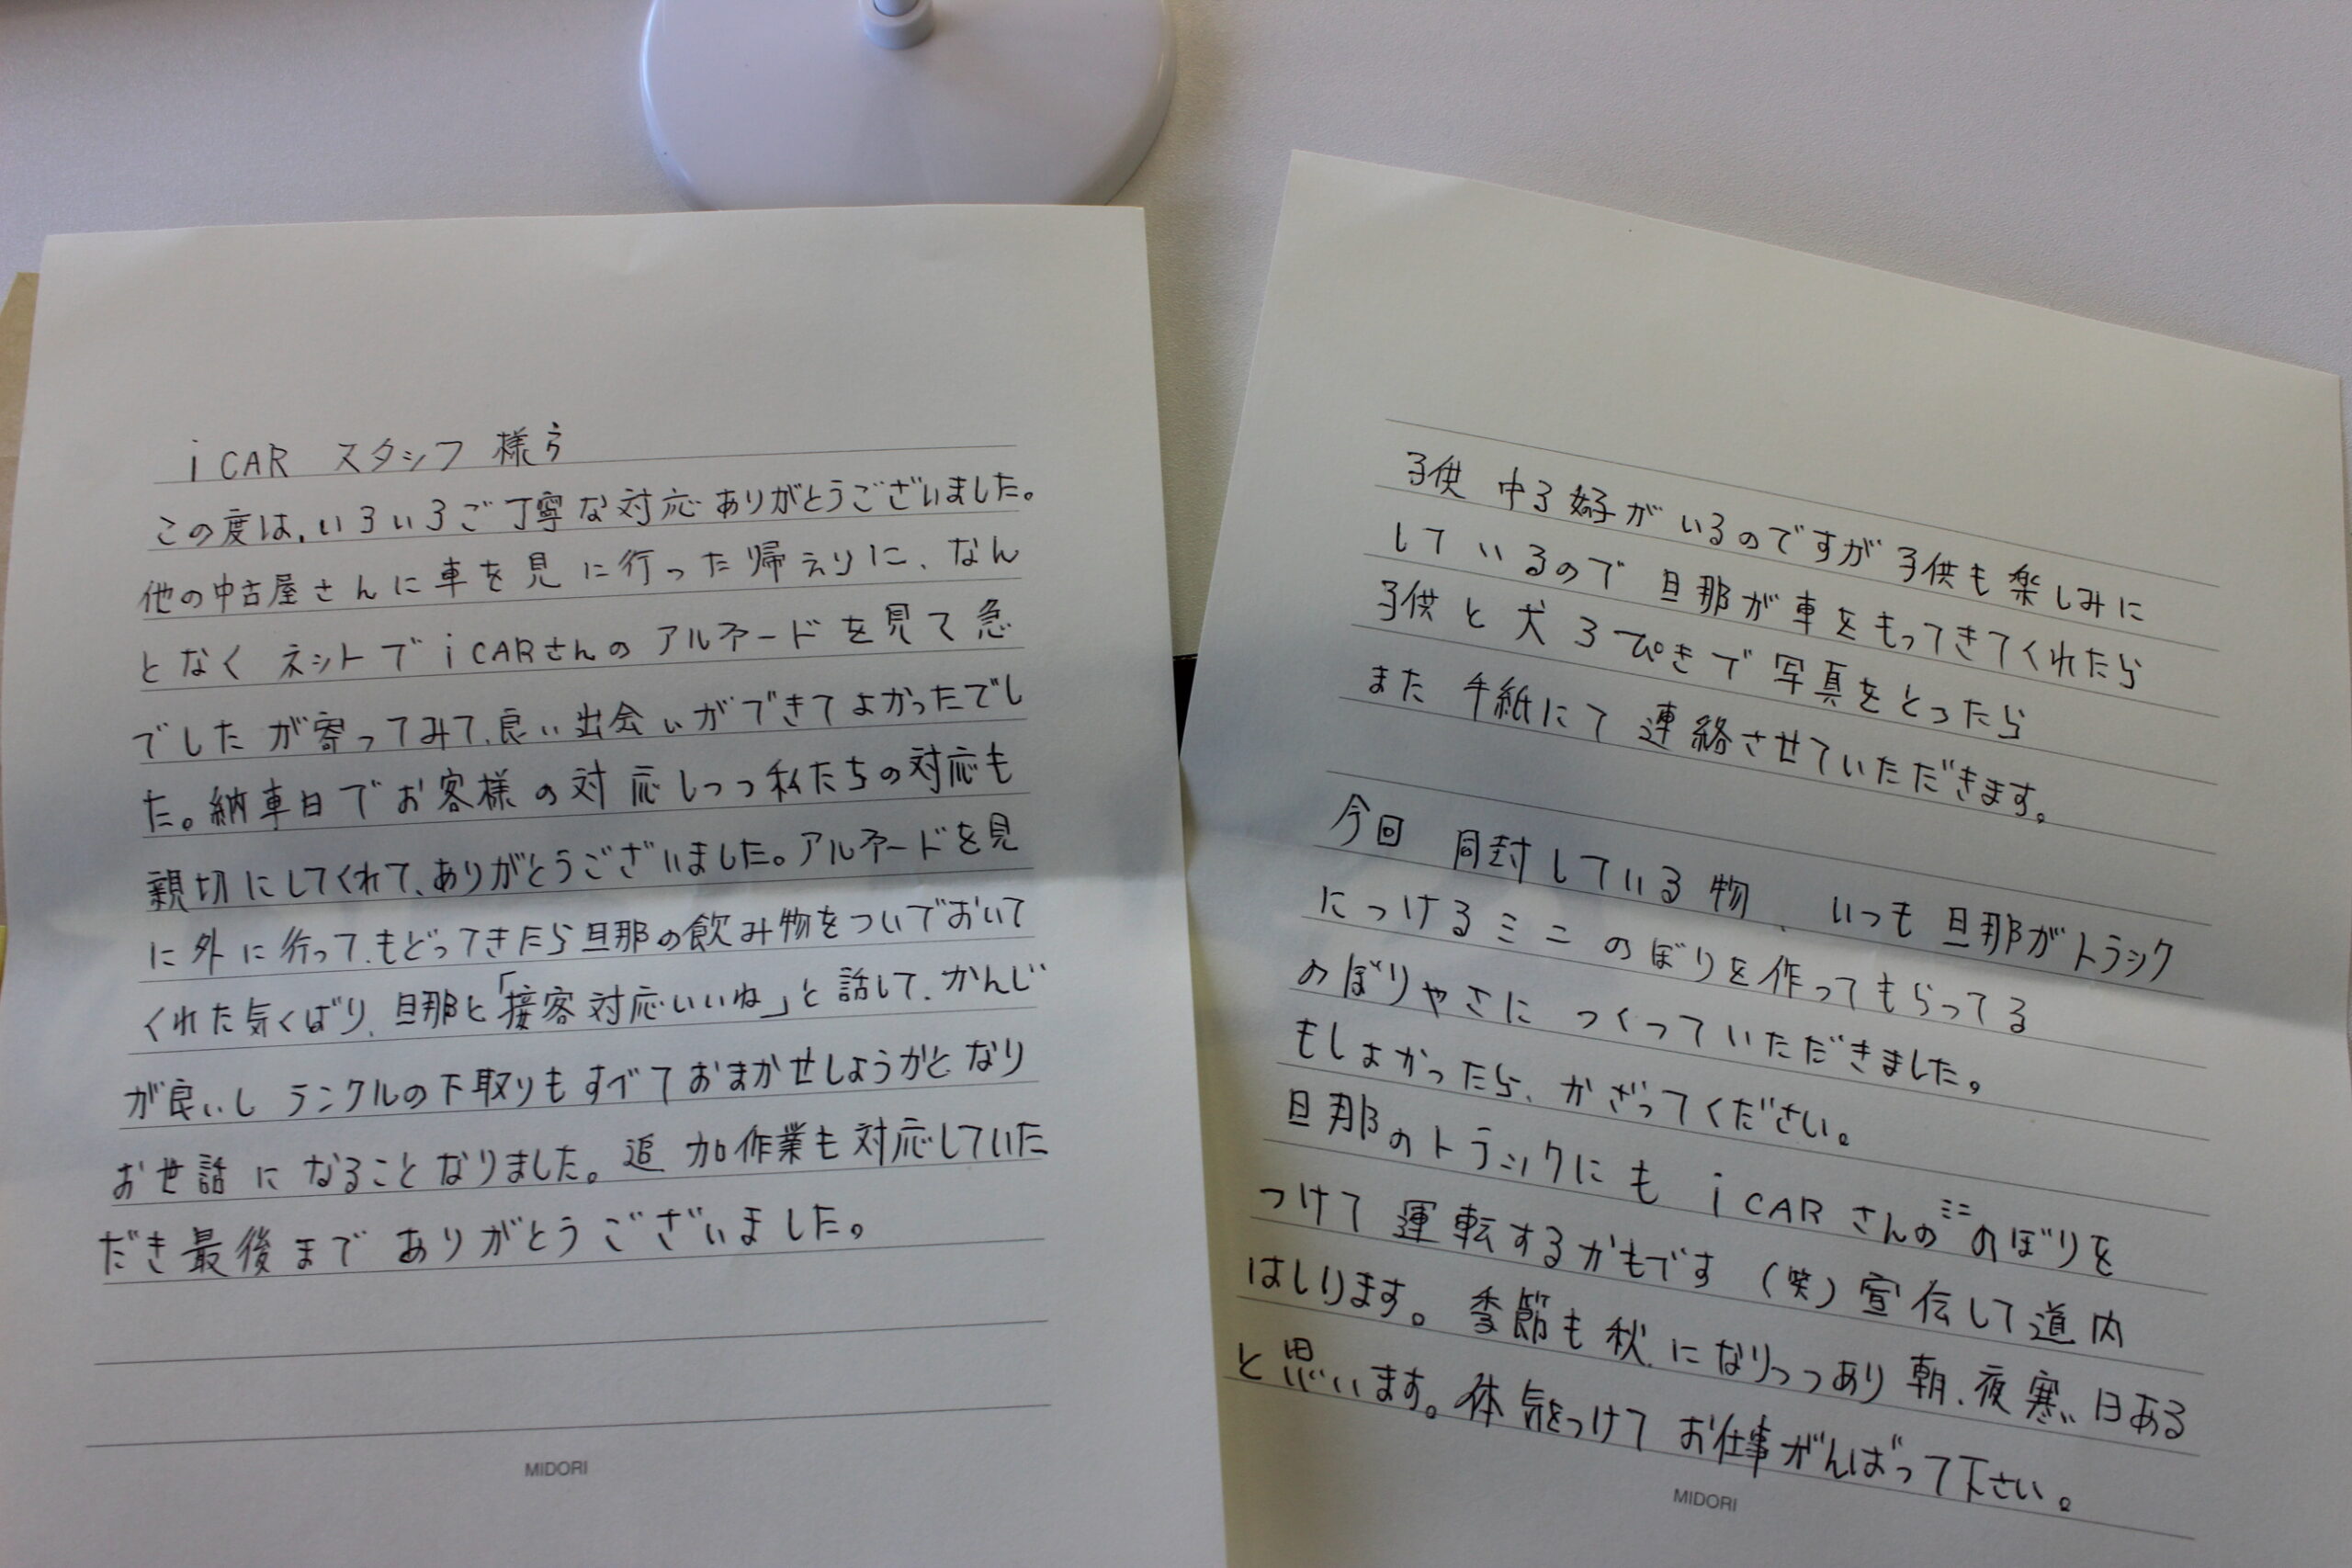 iCAR スタッフ 様方
この度は、いろいろご丁寧な対応ありがとうございました。
他の中古屋さんに車を見に行った帰えりに、なん
となく ネットで iCARさんの アルファードを見て急
でしたが寄ってみて、良い出会いができてよかったでし
た。納車日でお客様の対応しつつ私たちの対応も
親切にしてくれて、ありがとうございました。アルファードを見
に外に行って、もどってきたら旦那の飲み物をついでおいて
くれた気くばり、旦那と「接客対応いいね」と話して、かんじ
が良いし ランクルの下取りもすべておまかせしようかと なり
お世話になることなりました。追加作業も対応していた
だき最後まで ありがとうございました。
MIDORI
子供 中3 がいるのですが 子供も楽しみに
しているので 旦那が車をもってきてくれたら
子供と犬3ぴきで写真をとったら
また 手紙にて 連絡させていただきます。
今回 同封している物、いつも旦那がトラック
につけるミニのぼりを作ってもらってる
のぼりやさに つくっていただきました。
もしよかったら、かざってください。
旦那のトラックにも iCARさんのミニのぼりを
つけて 運転するかもです (笑) 宣伝して道内
はしります。季節も秋になりつつあり 朝、夜寒い日ある
と思います。体気をつけて お仕事がんばって下さい。
MIDORI